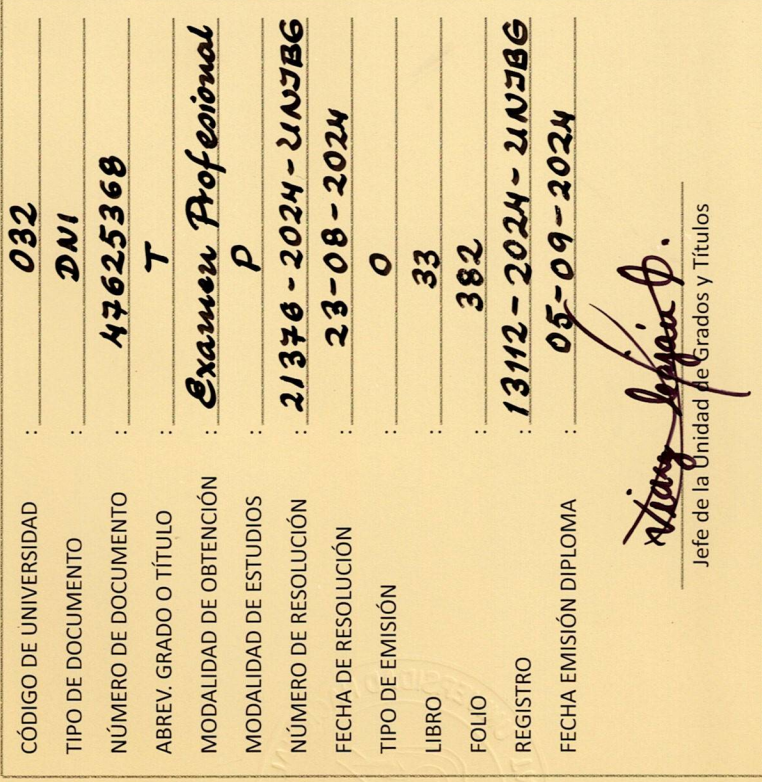 CÓDIGO DE UNIVERSIDAD : 032
TIPO DE DOCUMENTO : DNI
NÚMERO DE DOCUMENTO : 47625368
ABREV. GRADO O TÍTULO : T
MODALIDAD DE OBTENCIÓN : Examen Profesional
MODALIDAD DE ESTUDIOS : P
NÚMERO DE RESOLUCIÓN : 21376-2024-UNJBG
FECHA DE RESOLUCIÓN : 23-08-2024
TIPO DE EMISIÓN : O
LIBRO : 33
FOLIO : 382
REGISTRO : 13112-2024-UNJBG
FECHA EMISIÓN DIPLOMA : 05-09-2024
Jefe de la Unidad de Grados y Títulos